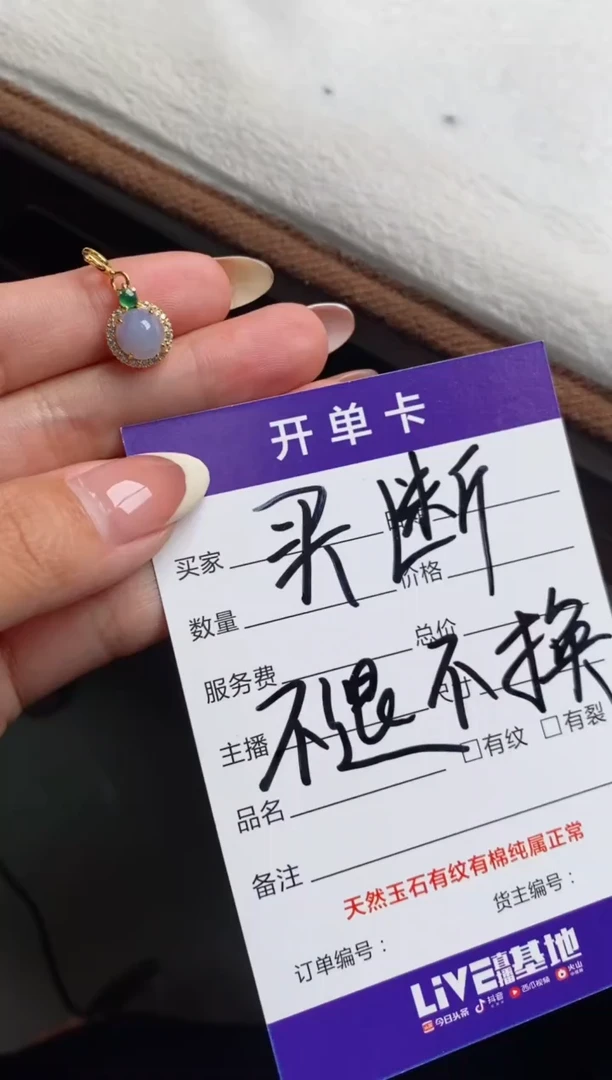 开单卡
买断
买家
价格
数量
总价
服务费
不退不换
主播
□有纹 □有裂
品名
备注
天然玉石有纹有棉纯属正常
货主编号：
订单编号：
LiVE直播基地
今日头条 抖音 西瓜视频 火山